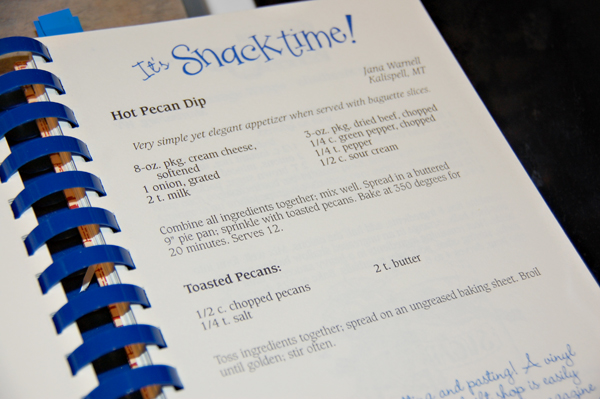 It's Snack-time!
Jana Warnell
Kalispell, MT
Hot Pecan Dip
Very simple yet elegant appetizer when served with baguette slices.
8-oz. pkg. cream cheese,
softened
1 onion, grated
2 t. milk
3-oz. pkg. dried beef, chopped
1/4 c. green pepper, chopped
1/4 t. pepper
1/2 c. sour cream
Combine all ingredients together; mix well. Spread in a buttered
9" pie pan; sprinkle with toasted pecans. Bake at 350 degrees for
20 minutes. Serves 12.
Toasted Pecans:
1/2 c. chopped pecans
1/4 t. salt
2 t. butter
Toss ingredients together; spread on an ungreased baking sheet. Broil
until golden; stir often.
and pasting! A vinyl
shop is easily